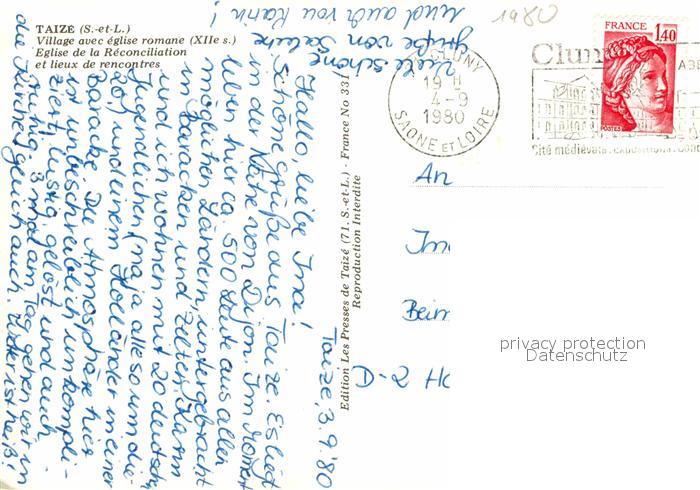 TAIZÉ (S.-et-L.)
Village avec église romane (XIIe s.)
Eglise de la Réconciliation
et lieux de rencontres
Edition Les Presses de Taizé (71. S.-et-L.) - France No 331
Reproduction Interdite
CLUNY
19 H
4-9
1980
SAONE ET LOIRE
Clun
Cité médiévale
FRANCE
1,40
POSTES
Taizé, 3.9.80
Hallo, liebe Ina!
Schöne Grüße aus Taizé. Es liegt
in der Nähe von Dijon. Im Moment
leben hier ca 500 Leute aus allen
möglichen Ländern, untergebracht
in Baracken und Zelten. Karin
und ich wohnen mit 20 deutschen
Jugendlichen (naja alle so um die
20) und einem Holländer in einer
Baracke. Die Atmosphäre hier
ist unbeschreiblich unkompli-
ziert, lustig, gelöst und auch
ruhig. 3 mal am Tag gehen wir in
die Kirche, freiwillig auch. Wetter ist heiß!
Viele schöne
Grüße von Sabine
und auch von Karin!
An
Beim
D-2 H
privacy protection
Datenschutz